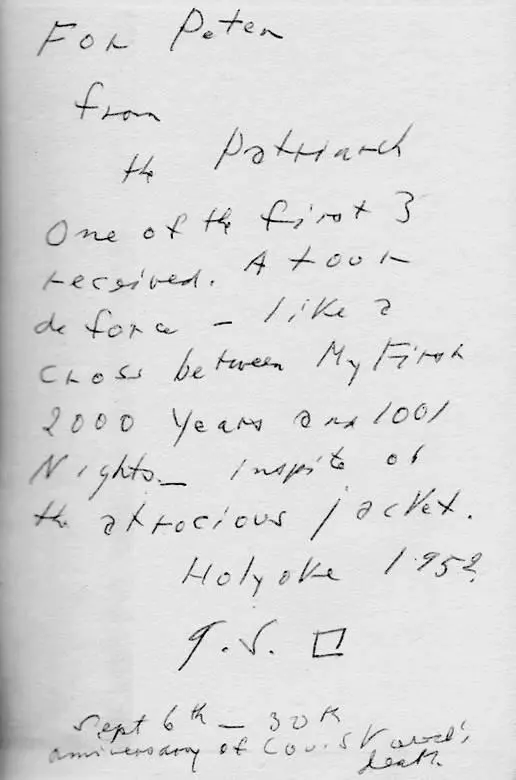 For Peter
from
the Patriarch
One of the first 3
received. A tour
de force – like a
cross between My First
2000 Years and 1001
Nights – inspite of
the atrocious jacket.
Holyoke 1952
G.S. □
Sept 6th – 30th
anniversary of
death.